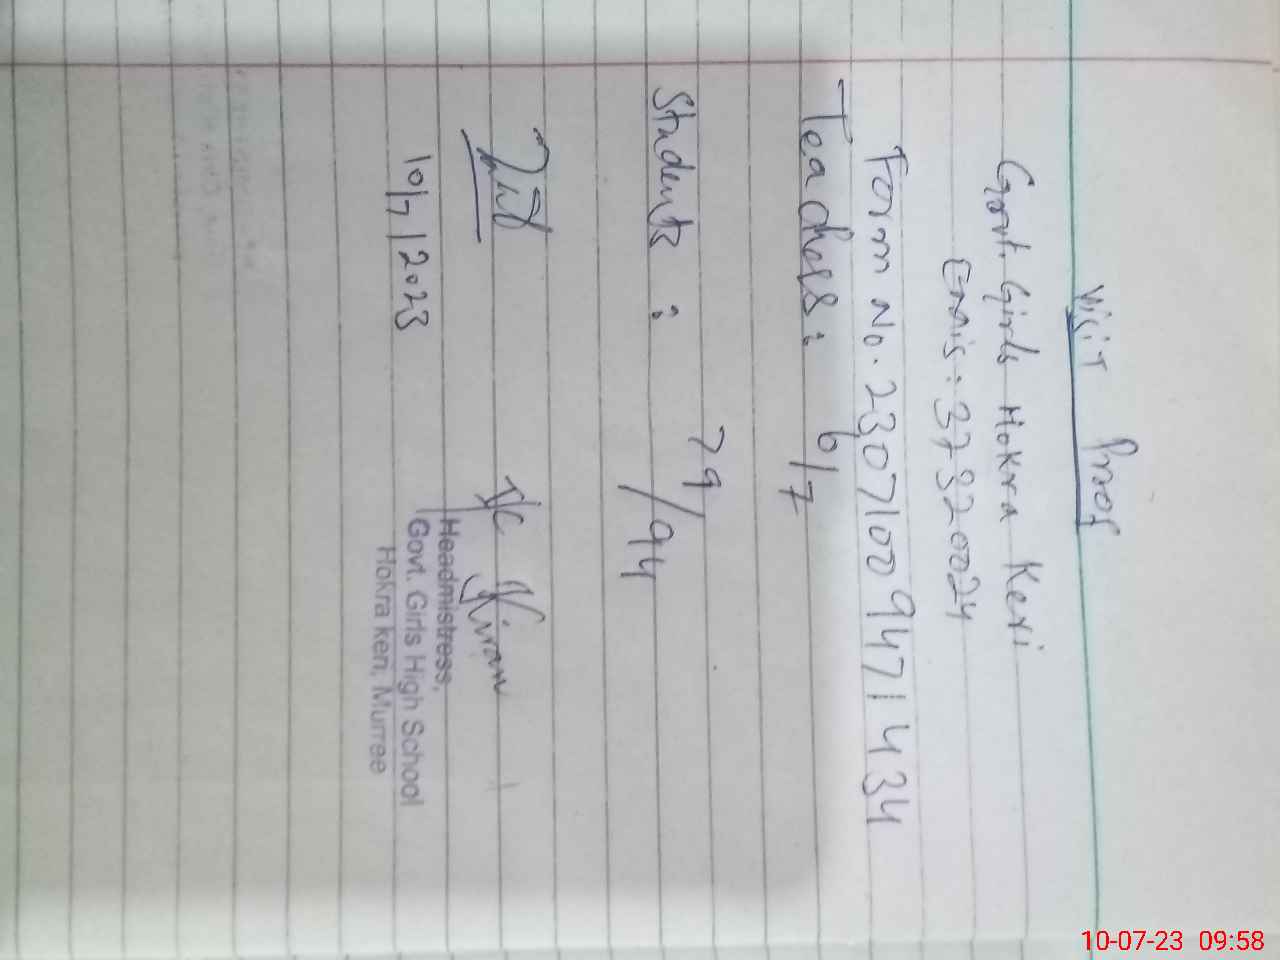 Visit Proof
Govt. Girls Hokra Keri
Emis: 37320024
Form No. 23071009471434
Teachers: 6/7
Students: 79/94
I/C Kiran
10/7/2023
Headmistress,
Govt. Girls High School
Hokra keri, Murree
10-07-23 09:58